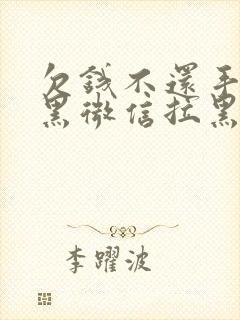 欠錢不還手
黑微信拉黑
李躍波